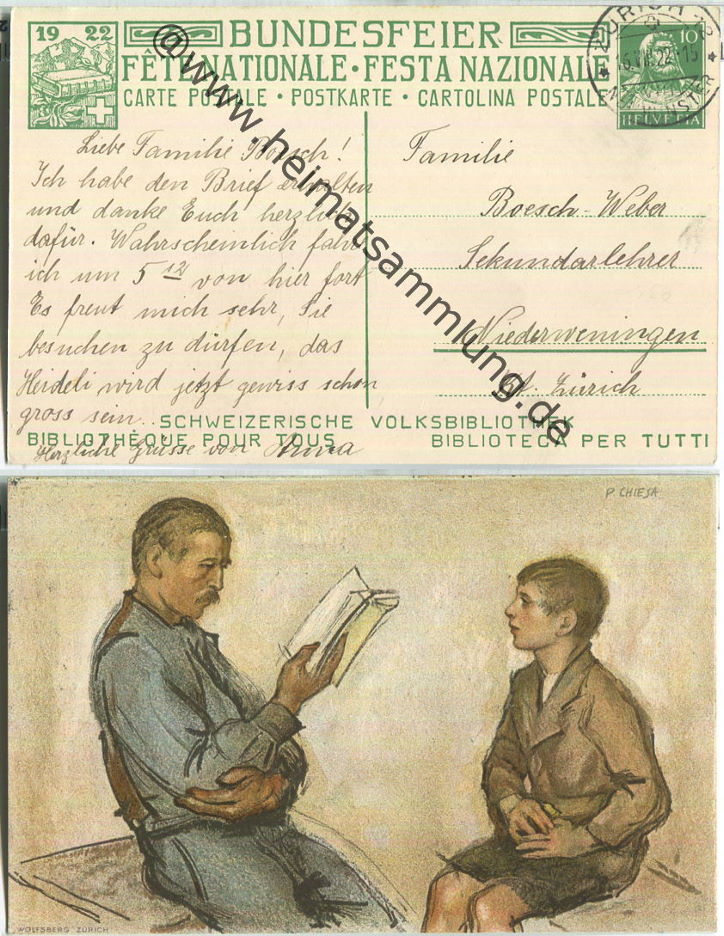 19 22 BUNDESFEIER
FÊTE NATIONALE · FESTA NAZIONALE
CARTE POSTALE · POSTKARTE · CARTOLINA POSTALE
10
HELVETIA
ZÜRICH
Liebe Familie Boesch!
Ich habe den Brief erhalten
und danke Euch herzlich
dafür. Wahrscheinlich fahre
ich um 5 12 von hier fort
Es freut mich sehr, Sie
besuchen zu dürfen, das
Heideli wird jetzt gewiss schon
gross sein.
Herzliche grüsse von Anna
Familie
Boesch-Weber
Sekundarlehrer
Niederweningen
Kt. Zürich
SCHWEIZERISCHE VOLKSBIBLIOTHEK
BIBLIOTHÈQUE POUR TOUS BIBLIOTECA PER TUTTI
@www.heimatsammlung.de
P. CHIESA
WOLFSBERG ZÜRICH